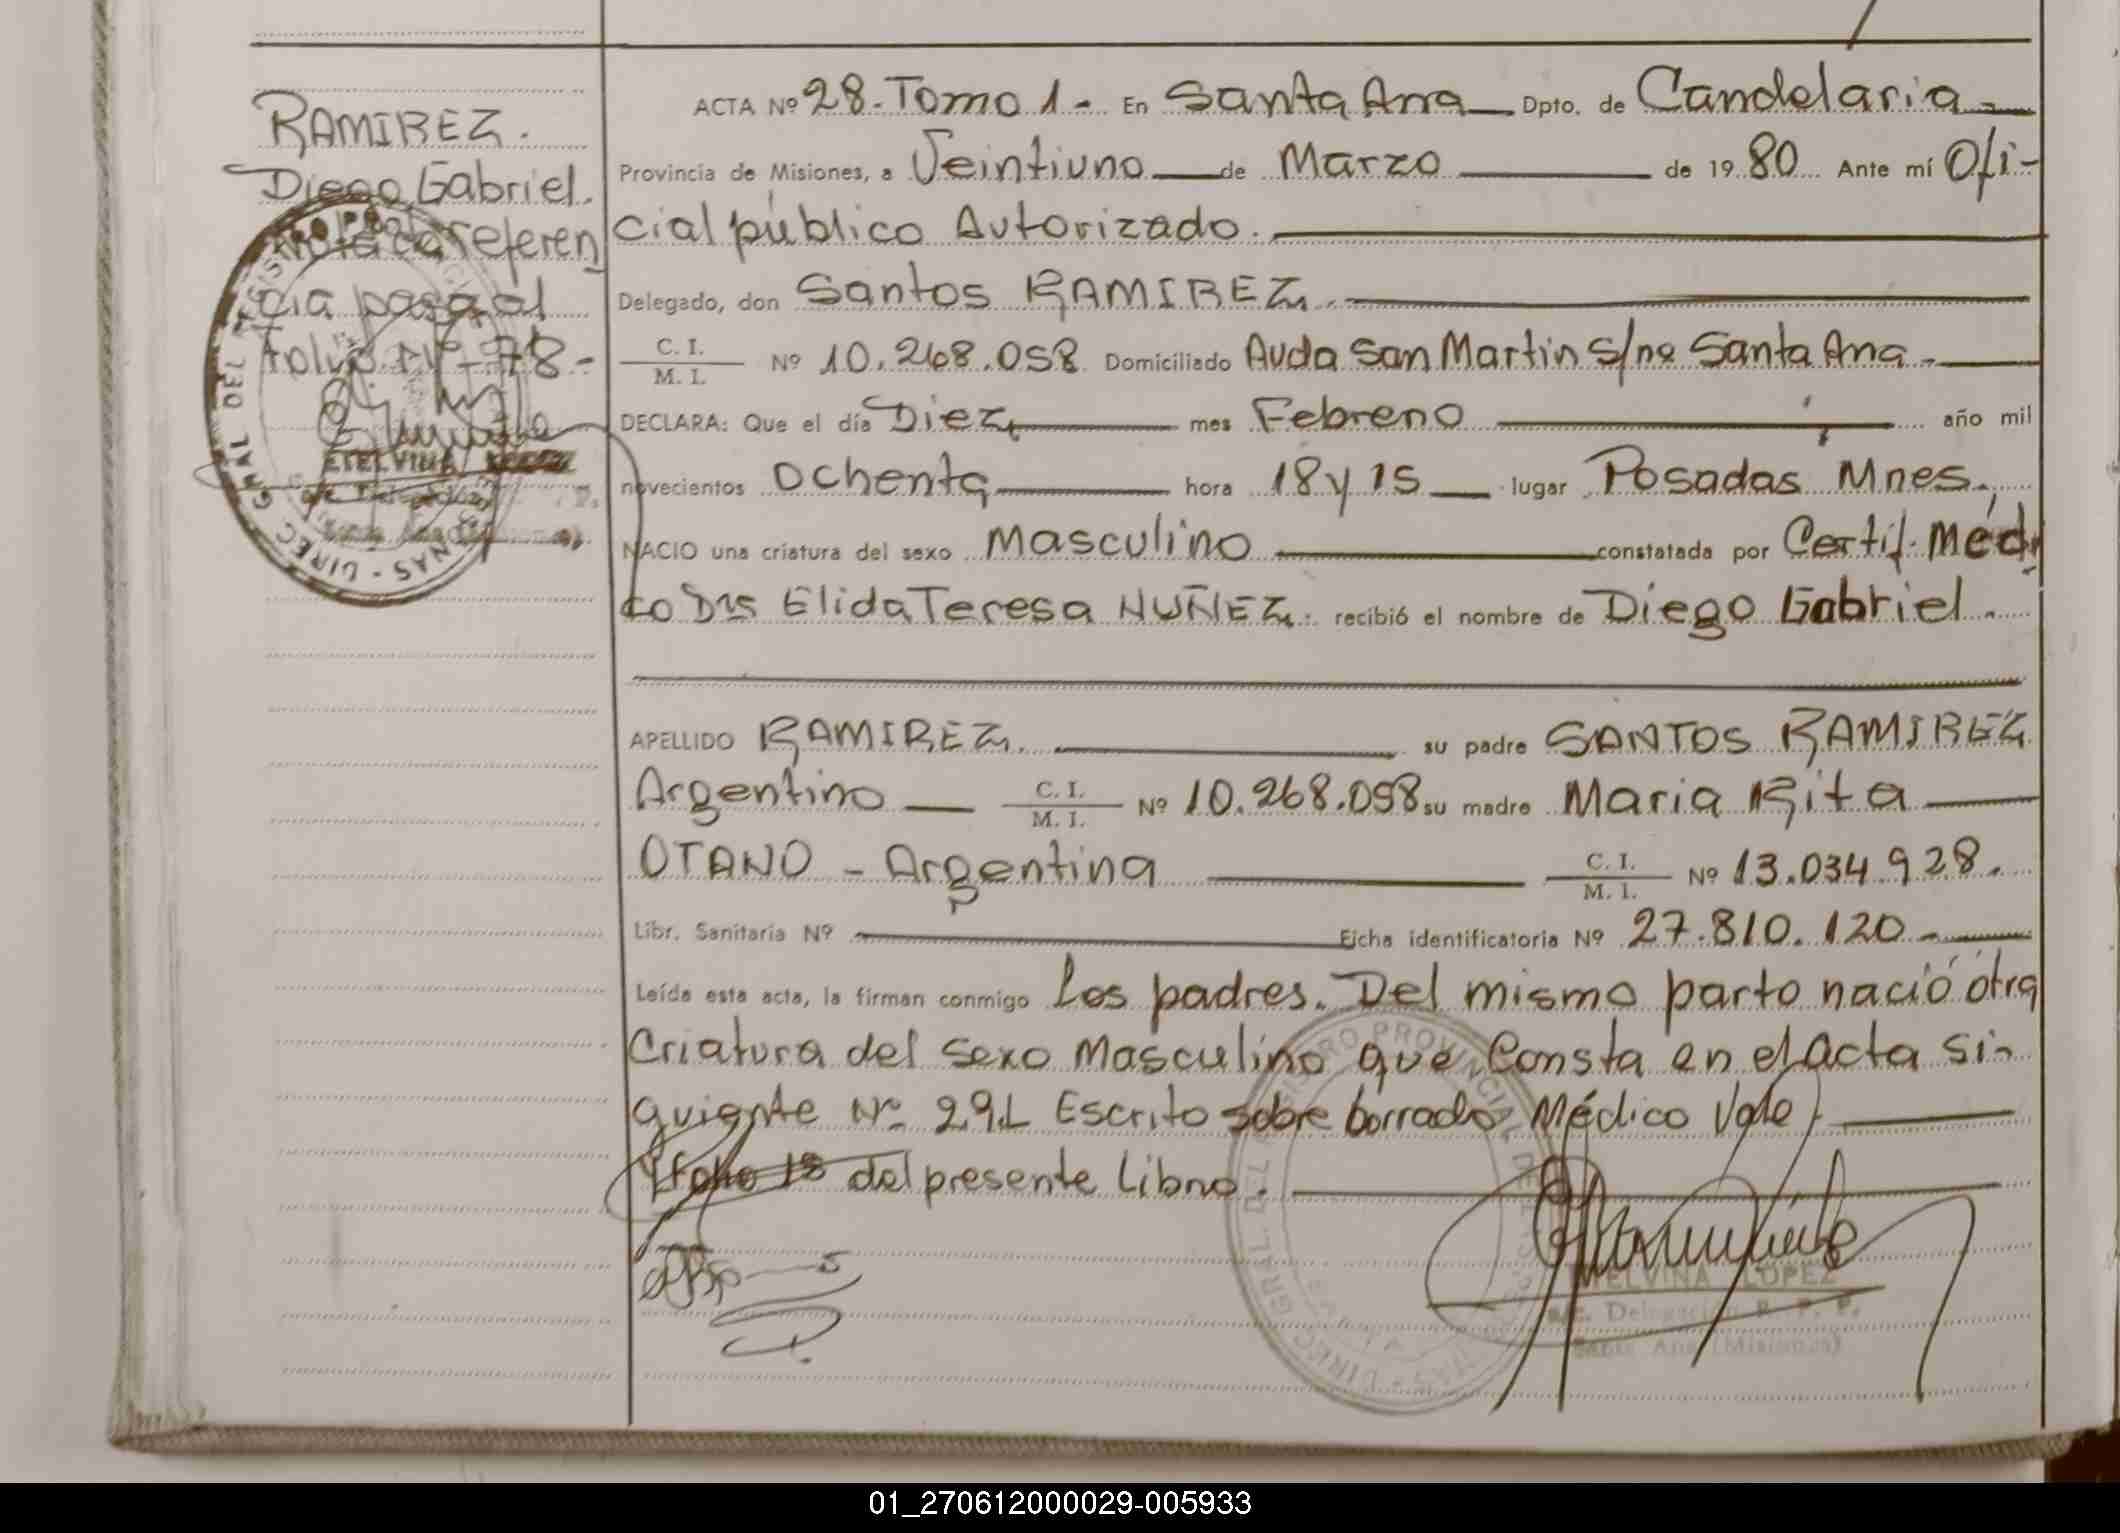 RAMIREZ.
Diego Gabriel.
referen
cia pasa al
folio Nº 78-
ETELVINA
ACTA Nº 28. Tomo 1 - En Santa Ana Dpto. de Candelaria -
Provincia de Misiones, a Veintiuno de Marzo de 19 80 Ante mí Ofi-
cial público Autorizado.
Delegado, don Santos RAMIREZ.
C. I.
M. I. Nº 10.268.058 Domiciliado Avda San Martin s/nº Santa Ana -
DECLARA: Que el día Diez mes Febrero año mil
novecientos Ochenta hora 18 y 15 lugar Posadas Mnes.,
NACIO una criatura del sexo Masculino constatada por Certif. Médi
co Dra Elida Teresa NUÑEZ. recibió el nombre de Diego Gabriel.
APELLIDO RAMIREZ. su padre SANTOS RAMIREZ
Argentino C. I.
M. I. Nº 10.268.058 su madre Maria Rita
OTANO - Argentina C. I.
M. I. Nº 13.034.928.
Libr. Sanitaria Nº Ficha identificatoria Nº 27.810.120 -
Leída esta acta, la firman conmigo Los padres. Del mismo parto nació otra
Criatura del sexo Masculino que Consta en el acta si-
guiente Nº 29 Escrito sobre borrado Médico Vale
y folio 18 del presente Libro.
ETELVINA LOPEZ
a/c. Delegación R. P. P.
Santa Ana (Misiones)
01_270612000029-005933